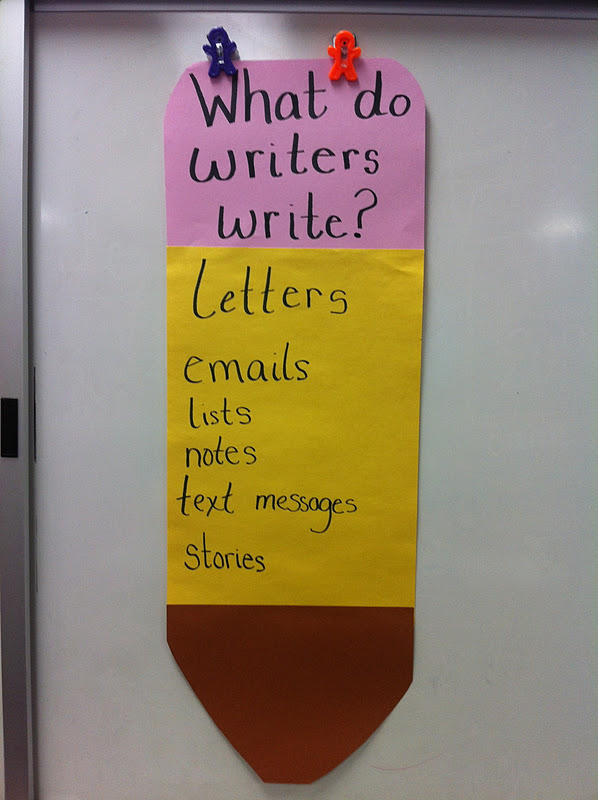 What do
writers
write?
Letters
emails
lists
notes
text messages
stories